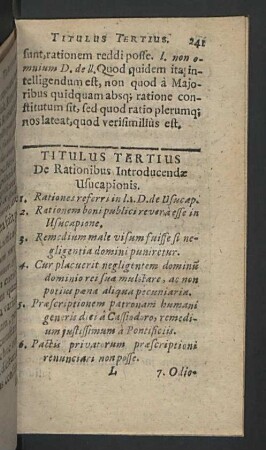 TITULUS TERTIUS. 241
sunt, rationem reddi posse. l. non o-
mnium D. de ll. Quod quidem ita; in-
telligendum est, non quod à Majo-
ribus quidquam absq; ratione con-
stitutum sit, sed quod ratio plerumq;
nos lateat, quod verisimilius est.
TITULUS TERTIUS
De Rationibus Introducendæ
Usucapionis.
1. Rationes referri in l. 1. D. de Usucap.
2. Rationem boni publici reverà esse in
Usucapione.
3. Remedium male visum fuisse si ne-
gligentia domini puniretur.
4. Cur placuerit negligentem dominũ
dominio rei suæ mulctare, ac non
potius pæna aliqua pecuniaria.
5. Præscriptionem patronam humani
generis dici à Cassiodoro, remedi-
um justissimum à Pontificiis.
6. Pactis privatorum præscriptioni
renunciari non posse.
L 7. Odio-